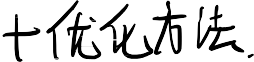 十优化方法.